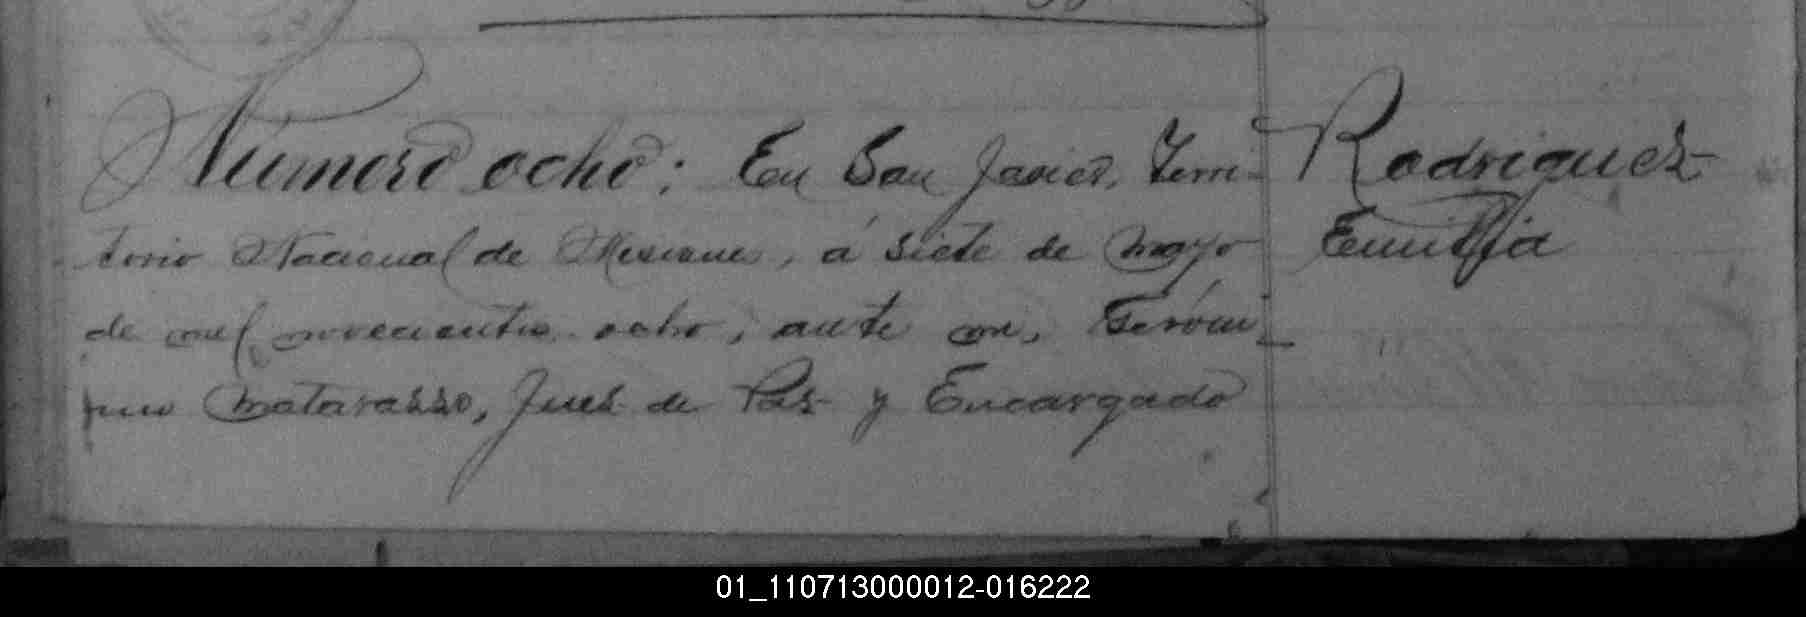 Número ocho: En San Javier, Terri-
torio Nacional de Misiones, á siete de mayo
de mil novecientos ocho, ante mi, Geróni-
mo Matarasso, Juez de Paz y Encargado
Rodriguez
Emilia
01_110713000012-016222